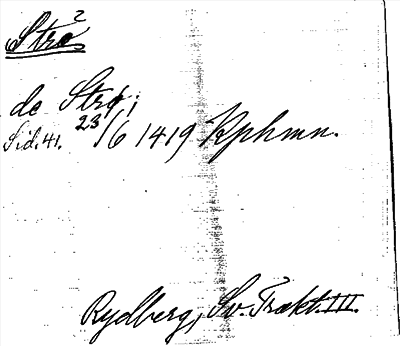 Strø²
de Strø;
Sid. 41. 23/6 1419 Kphmn.
Rydberg, Sv. Trakt. III.